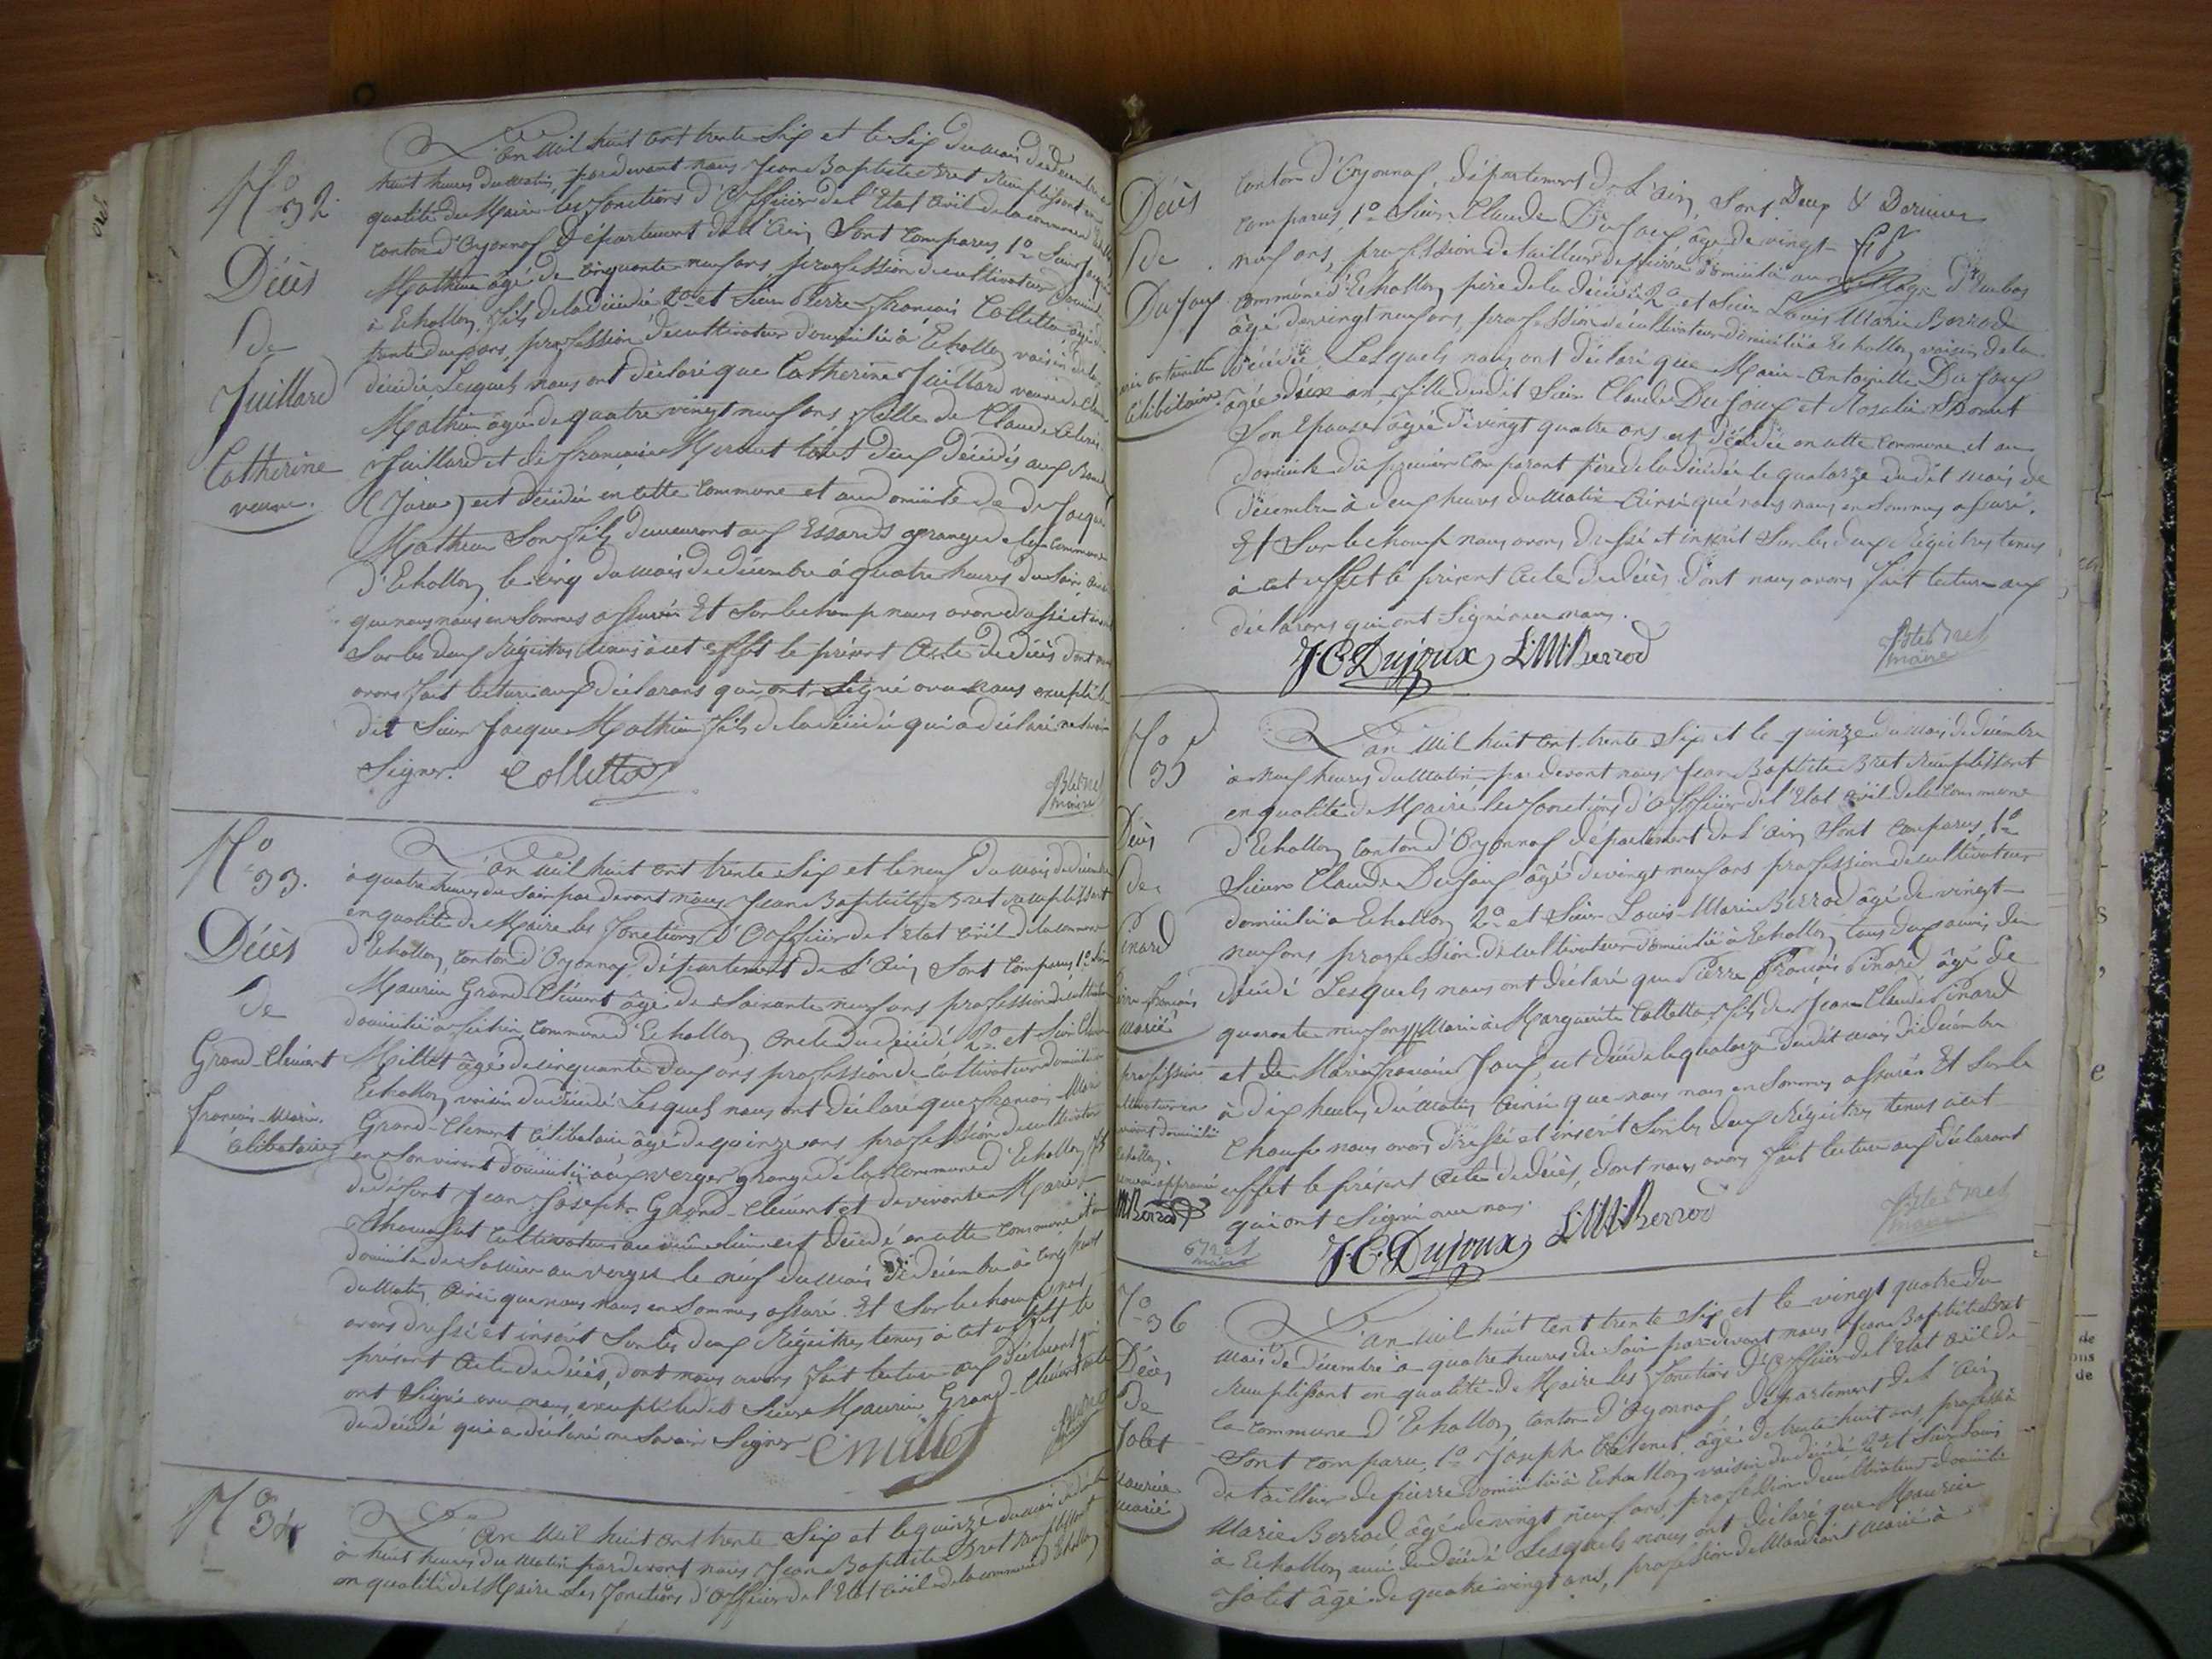 N.º 32
Décès
de
Juillard
Catherine
veuve.
L'an mil huit cent trente six et le six du mois de décembre à
huit heures du matin, pardevant nous Jean Baptiste Bret remplissant en
qualité de Maire les fonctions d'officier de l'état civil de la commune d'Echallon
canton d'Oyonnax Département de l'Ain, Sont comparus, 1º Sieur Jacque
Mathieu âgé de cinquante neuf ans, profession de cultivateur domicilié
à Echallon, fils de la décédée 2º et Sieur Pierre François Colletta, âgé de
trente deux ans, profession de cultivateur domicilié à Echallon voisin de la
décédée Lesquels nous ont déclaré que Catherine Juillard veuve de
Mathieu âgée de quatre vingt neuf ans, fille de Claude
Juillard et de françoise Mermet tous deux décédés aux
(Jura) est décédée en cette commune et au domicile de dt Jacque
Mathieu Son fils demeurant aux Essards grange de la commune
d'Echallon le cinq du mois de décembre à quatre heures du soir, ainsi
que nous nous en sommes assurés Et Sur le champ nous avons dressé et inscrit
Sur les deux Régistres tenus à cet effet le présent Acte de décès dont nous
avons fait lecture aux déclarans qui ont Signé avec nous excepté le
dit Sieur Jacque Mathieu fils de la décédée qui a déclaré ne savoir
Signer. Colletta
Bte Bret
maire
N.º 33.
Décès
de
Grand-Clément
françois-Marie.
Célibataire
L'an mil huit cent trente six et le neuf du mois de décembre
à quatre heures du soir pardevant nous Jean Baptiste Bret remplissant
en qualité de Maire les fonctions d'officier de l'état civil de la commune
d'Echallon, canton d'Oyonnax, département de l'Ain, Sont comparus 1º Sieur
Maurice Grand-Clément âgé de soixante neuf ans profession de cultivateur
domicilié à commune d'Echallon, oncle du décédé 2º et Sieur
Millet âgé de cinquante deux ans profession de cultivateur domicilié
Echallon, voisin du décédé Lesquels nous ont déclaré que François Marie
Grand-Clément célibataire âgé de quinze ans profession de cultivateur
en son vivant domicilié aux verger grange de la commune d'Echallon fils
de défunt Jean Joseph Grand-Clément et de vivante Marie
cultivateur au même lieu est décédé en cette commune et au
domicile de sa mère au verger le neuf du mois de décembre à cinq heures
du matin, ainsi que nous nous en sommes assuré. Et Sur le champ nous
avons dressé et inscrit Sur les deux Régistres tenus à cet effet le
présent Acte de décès, dont nous avons fait lecture aux déclarant qui
ont Signé avec nous, excepté ledit Sieur Maurice Grand-Clément oncle
du décédé qui a déclaré ne savoir Signer C Millet
Bte Bret
maire
N.º 34
L'an mil huit cent trente six et le quinze du mois de décembre
à huit heures du matin pardevant nous Jean Baptiste Bret remplissant
en qualité de Maire les fonctions d'officier de l'état civil de la commune d'Echallon
Décès
de
Dujoux
célibataire
canton d'Oyonnax, département de l'Ain, Sont
comparus, 1º Sieur Claude Dujoux, âgé de vingt-
neuf ans, profession de tailleur de pierre domicilié au
commune d'Echallon père de la décédée 2º et Sieur Louis Marie Berrod
âgé de vingt neuf ans, profession de cultivateur domicilié à Echallon, voisin de la
décédée, Lesquels nous ont déclaré que Marie-Antoinette Dujoux
âgée deux an, fille du dit Sieur Claude Dujoux et Rosalie
Son Epouse âgée de vingt quatre ans est décédée en cette commune et au
domicile du premier comparant père de la décédée le quatorze du dit mois de
décembre à deux heures du matin Ainsi que nous nous en sommes assuré.
Et Sur le champ nous avons dressé et inscrit Sur les deux Régistres tenus
à cet effet le présent Acte de décès, dont nous avons fait lecture aux
déclarans qui ont Signé avec nous.
J. C. Dujoux L. M. Berrod
Bte Bret
maire
Nº 35
Décès
de
Pinard
françois
marié
L'an mil huit cent trente six et le quinze du mois de décembre
à neuf heures du matin pardevant nous Jean Baptiste Bret remplissant
en qualité de Maire les fonctions d'officier de l'état civil de la commune
d'Echallon canton d'Oyonnax département de l'Ain Sont comparus, 1º
Sieur Claude Dujoux âgé de vingt neuf ans profession de cultivateur
domicilié à Echallon 2º et Sieur Louis-Marie Berrod âgé de vingt-
neuf ans, profession de cultivateur domicilié à Echallon, tous deux amis du
décédé Lesquels nous ont déclaré que Pierre François Pinard âgé de
quarante neuf ans Marié à Marguerite Colletta, fils de Jean-Claude Pinard
et de Marie françoise Joux, est décédé le quatorze du dit mois de décembre
à dix heures du matin, Ainsi que nous nous en sommes assurés Et Sur le
champ nous avons dressé et inscrit Sur les deux Régistres tenus à cet
effet le présent Acte de décès, dont nous avons fait lecture aux déclarant
qui ont Signé avec nous
profession
cultivateur en
vivant domicilié
Echallon.
M Berrod
Bret
maire
J. C. Dujoux L. M. Berrod
Bte Bret
maire
Nº 36
Décès
de
Jolet
Maurice
marié
L'an mil huit cent trente six et le vingt quatre du
mois de décembre à quatre heures du soir pardevant nous Jean Baptiste Bret
remplissant en qualité de Maire les fonctions d'officier de l'état civil de
la commune d'Echallon, canton d'Oyonnax département de l'Ain
Sont comparu, 1º Joseph âgé de trente huit ans, profession
de tailleur de pierre domicilié à Echallon voisin du décédé 2º et Sieur Louis
Marie Berrod âgé de vingt neuf ans, profession de cultivateur domicilié
à Echallon, ami du décédé Lesquels nous ont déclaré que Maurice
Jolet âgé de quatre vingt ans, profession de Mandiant marié à